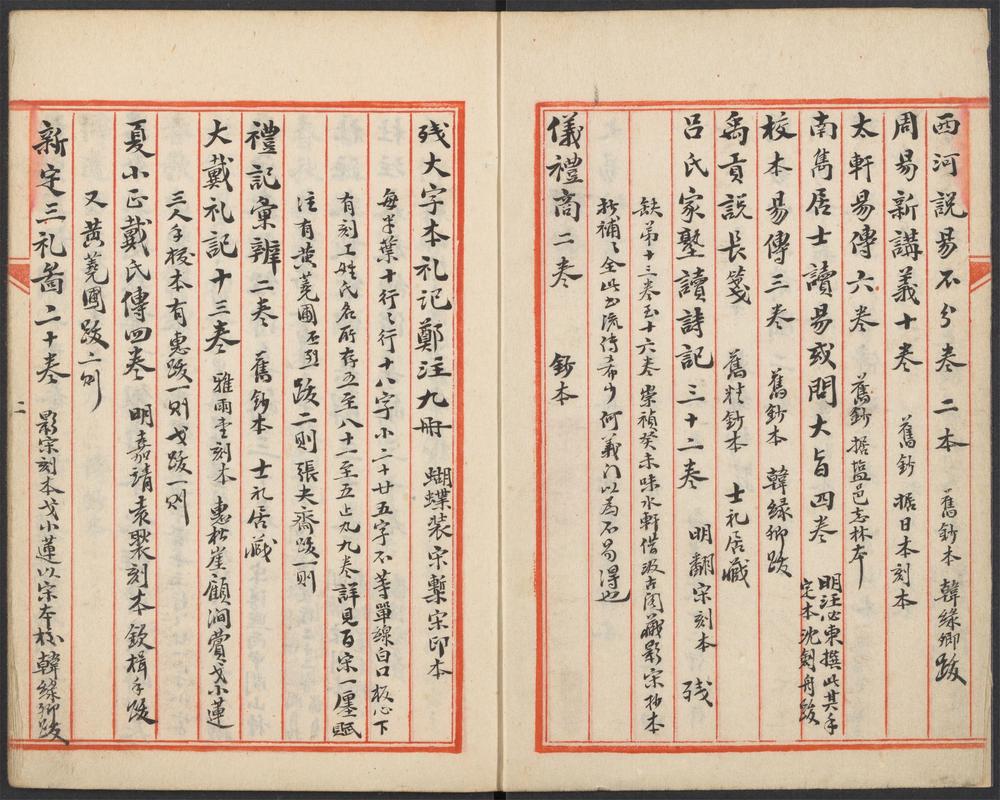 西河説易不分卷二本　舊鈔本　韓緑卿跋
周易新講義十卷　舊鈔　據日本刻本
太軒易傳六卷　舊鈔　據盐邑志林本
南雋居士讀易或問大旨四卷　明汪必東撰此其手定本沈劍舟跋
校本易傳三卷　舊鈔本　韓緑卿跋
禹貢説長箋　舊精鈔本　士礼居藏
吕氏家塾讀詩記三十二卷　明翻宋刻本　残
缺第十三卷至十六卷崇禎癸未味水軒借汲古閣藏影宋抄本
抄補之全此書流傳希少何義門以為不易得也
儀禮商二卷　鈔本
残大字本礼记鄭注九冊　蝴蝶装宋槧宋印本
每半葉十行之行十八字小二十廿五字不等單線白口板心下
有刻工姓氏名所存五至八十一至五上九九卷詳見百宋一廛賦
注有黄蕘圃丕烈跋二則張夫齋跋一則
禮記彙辨二卷　舊鈔本　士礼居藏
大戴礼記十三卷　雅雨堂刻本　惠松崖顧澗薲戈小蓮
三人手校本有惠跋一则戈跋一则
夏小正戴氏傳四卷　明嘉靖袁褧刻本　欽楫手跋
又黄蕘圃跋二则
新定三礼圖二十卷　影宋刻本戈小蓮以宋本校韓緑卿跋
二